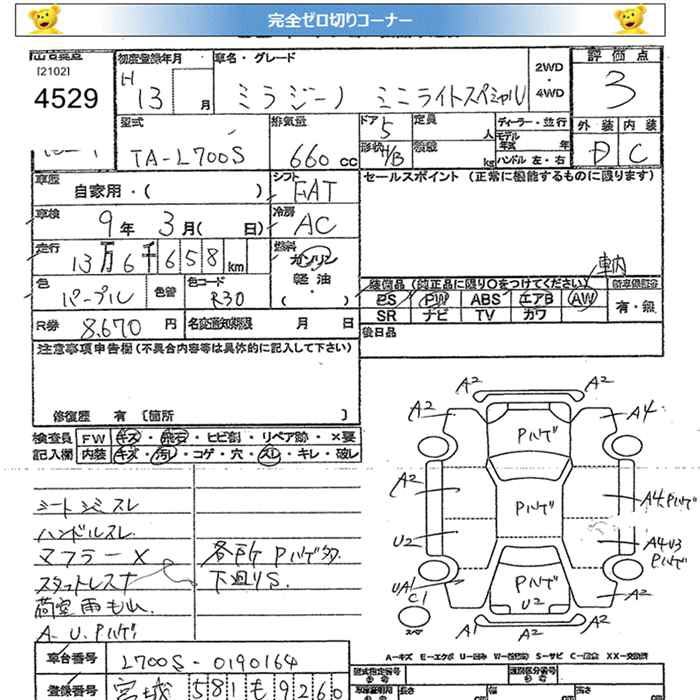 完全ゼロ切りコーナー
[2102]
4529
初度登録年月
H 13 月
車名・グレード
ミラジーノ ミニライトスペシャル
2WD
・
4WD
評価点
3
外装 内装
D C
型式
TA-L700S
排気量
660 cc
ドア 5
形状 H/B
定員 人
積載 kg
ディーラー・並行
モデル年式 年
ハンドル 左・右
車歴
自家用・( )
シフト
FAT
セールスポイント (正常に機能するものに限ります)
車検
9年 3月( 日)
冷房
AC
走行
13万6千658km
燃料
ガソリン
軽油
・( )
色
パープル
色替
色コード
R30
車内
装備品 (純正品に限り○をつけてください)
PS PW ABS エアB AW
SR ナビ TV カワ
有・無
R券 8,670 円
名変通知期限 月 日
後日品
注意事項申告欄(不具合内容等は具体的に記入して下さい)
修復歴 有 [箇所 ]
検査員 FW キズ・飛石・ヒビ割・リペア跡・×要
記入欄 内装 キズ・汚れ・コゲ・穴・スレ・キレ・破レ
シートシミスレ
ハンドルスレ
マフラー×
スタットレスナ
荷室雨もり
A.U.Pハゲ
各所Pハゲ多
下廻りS.
A2 A2
A2 A4
Pハゲ
A2
Pハゲ
A4.Pハゲ
U2
A4U3
Pハゲ
Pハゲ
U2
UA1
C1
A2
スペア
A1 A2
A−キズ E−エクボ U−凹み W−補修跡 S−サビ C−腐食 XX−交換済
車台番号
L700S-0190164
登録番号
宮城 581 も 9260
型式指定番号
類別区分番号
長さ cm 幅 cm 高さ cm